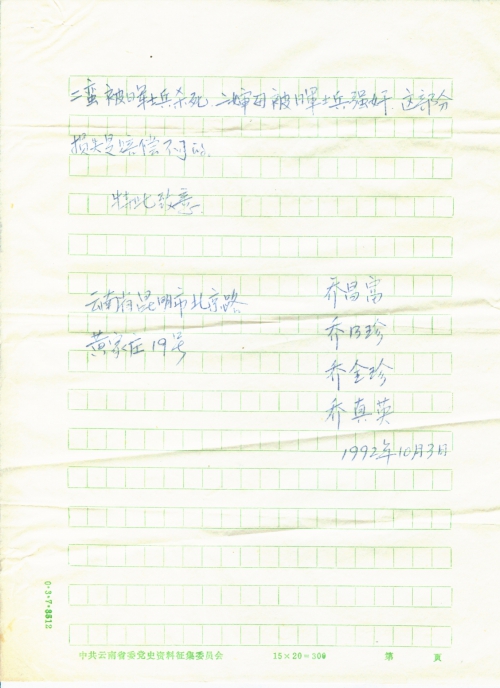 二蛮被日軍士兵杀死，二婶母被日軍士兵强奸，这部分
损失是赔偿不了的。
特此致意。
云南省昆明市北京路
黄家庄19号
乔昌富
乔巧珍
乔金珍
乔真英
1992年10月3日
0·3·7·8812
中共云南省委党史资料征集委员会
15×20=300
第 頁